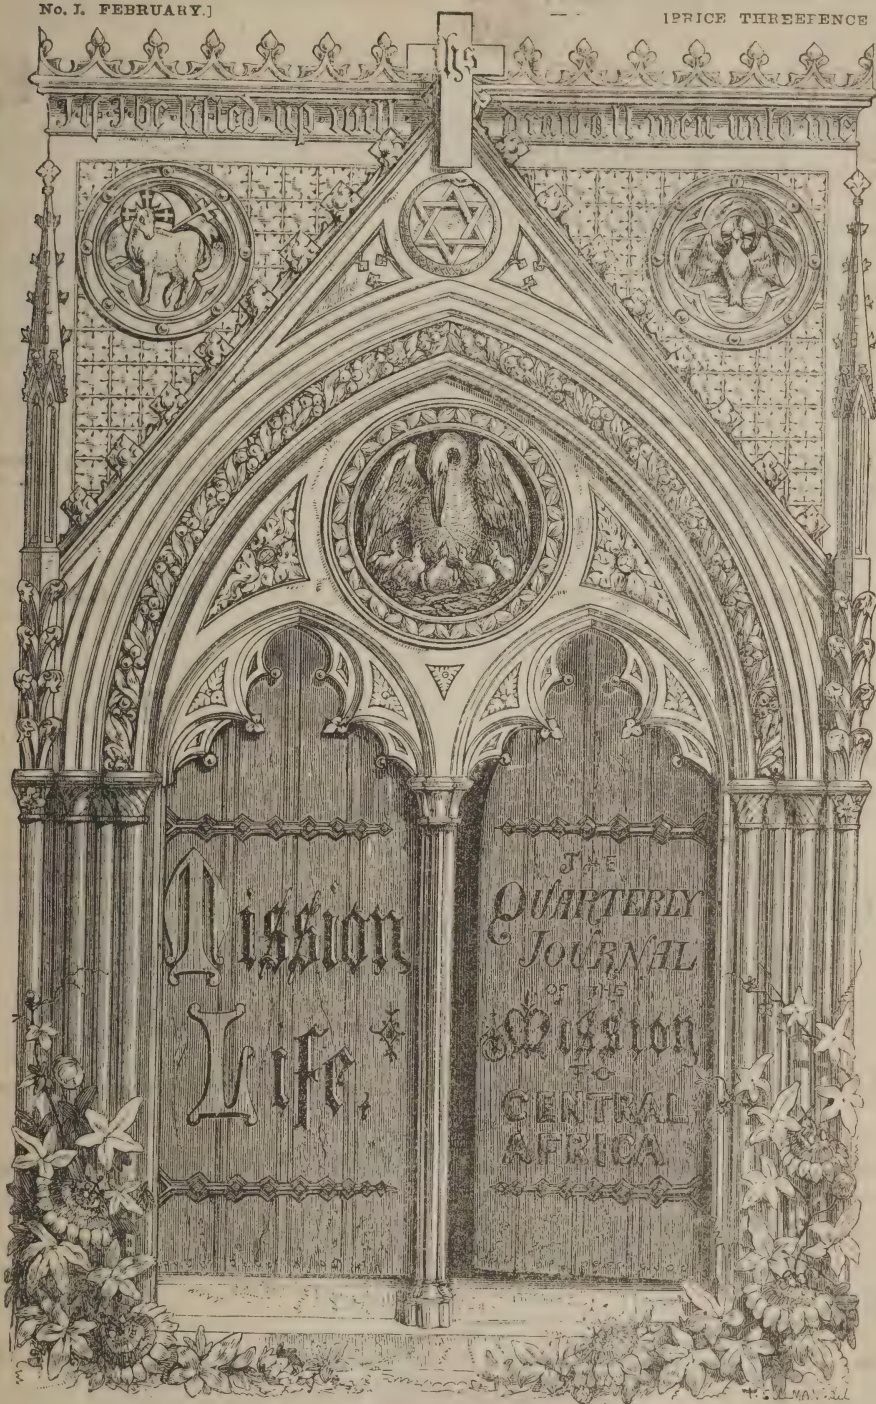 No. I. FEBRUARY.]
[PRICE THREEPENCE
ihs
If I be lifted up will draw all men unto me
Mission
Life.
THE
QUARTERLY
JOURNAL
OF THE
Mission
TO
CENTRAL
AFRICA